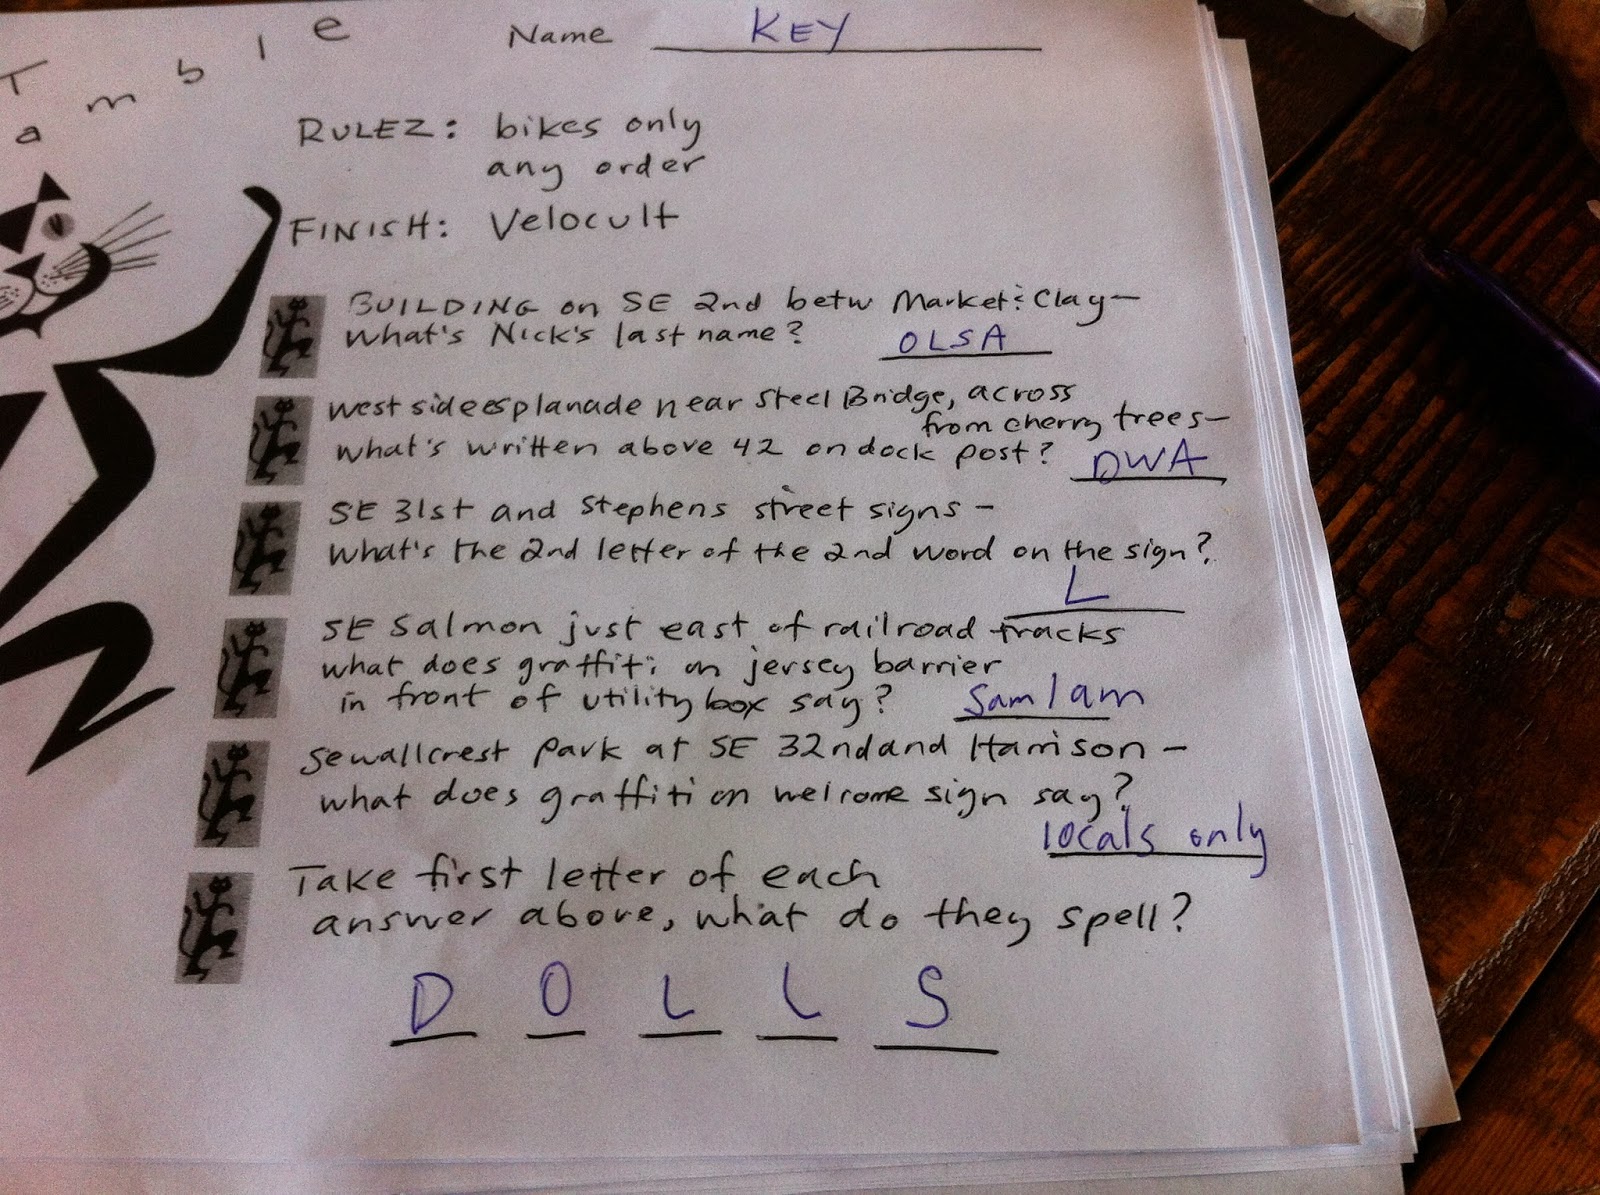 Tamble
Name KEY
RULEZ: bikes only
any order
FINISH: Velocult
BUILDING on SE 2nd betw Market & Clay—
what's Nick's last name? OLSA
west side esplanade near Steel Bridge, across
from cherry trees—
what's written above 42 on dock post? DWA
SE 31st and Stephens street signs —
what's the 2nd letter of the 2nd word on the sign?
L
SE Salmon just east of railroad tracks
what does graffiti on jersey barrier
in front of utility box say? Sam I am
Sewallcrest Park at SE 32nd and Harrison —
what does graffiti on welcome sign say?
locals only
Take first letter of each
answer above, what do they spell?
D O L L S